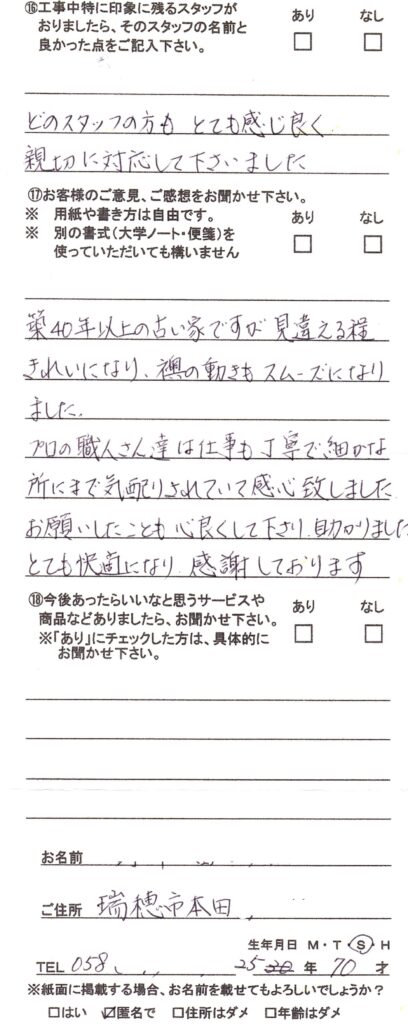 ⑯工事中特に印象に残るスタッフが
おりましたら、そのスタッフの名前と
良かった点をご記入下さい。
あり なし
□ □
どのスタッフの方も とても感じ良く
親切に対応して下さいました
⑰お客様のご意見、ご感想をお聞かせ下さい。
※ 用紙や書き方は自由です。
※ 別の書式(大学ノート・便箋)を
使っていただいても構いません
あり なし
□ □
築40年以上の古い家ですが 見違える程
きれいになり、襖の動きも スムーズになり
ました.
プロの職人さん達は仕事も丁寧で細かな
所にまで気配りされていて感心致しました
お願いしたことも 心良くして下さり. 助かりました
とても快適になり. 感謝しております
⑱今後あったらいいなと思うサービスや
商品などありましたら、お聞かせ下さい。
※「あり」にチェックした方は、具体的に
お聞かせ下さい。
あり なし
□ □
お名前
ご住所 瑞穂市本田
生年月日 M・T・Ⓢ・H
TEL 058 25 年 70 才
※紙面に掲載する場合、お名前を載せてもよろしいでしょうか?
□はい ☑匿名で □住所はダメ □年齢はダメ